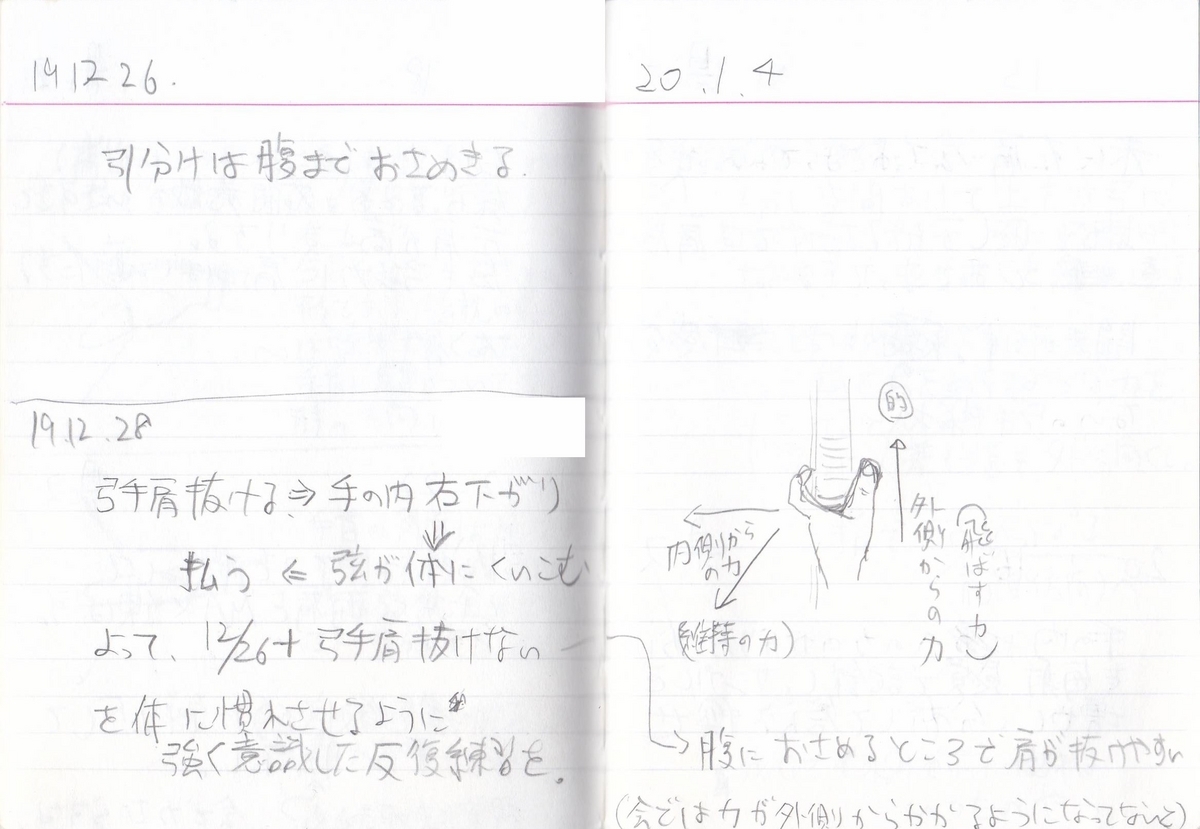 19 12 26.
引分けは腹までおさめきる.
19.12.28
弓手肩抜ける⇒手の内右下がり
⇓
払う ⇐ 弦が体にくいこむ
よって、12/26+弓手肩抜けない
を体に慣れさせるように
強く意識した反復練習を。
20.1.4
的
内側から
の力
(維持の力)
外側からの力
(飛ばす力)
→腹におさめるところで肩が抜けやすい
(会では力が外側からかかるようになってないと)